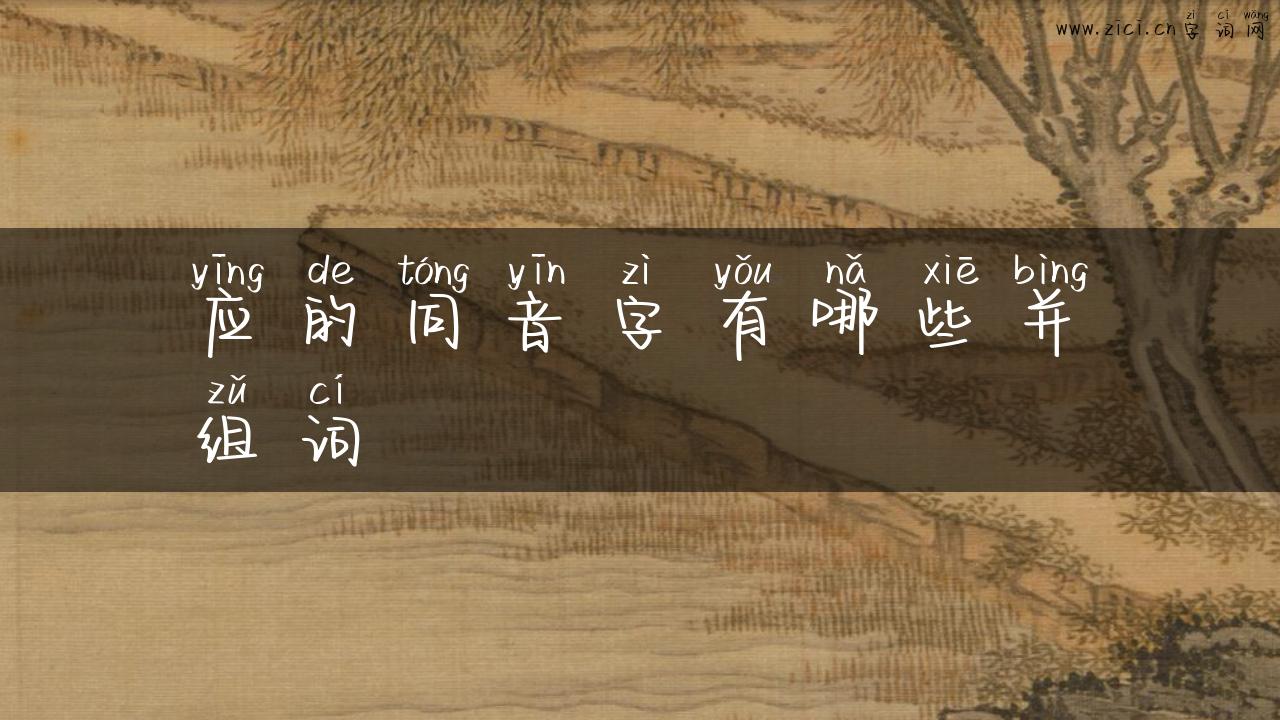 zì cí wǎng
www.zici.cn字词网
yīng de tóng yīn zì yǒu nǎ xiē bìng
应的同音字有哪些并
zǔ cí
组词